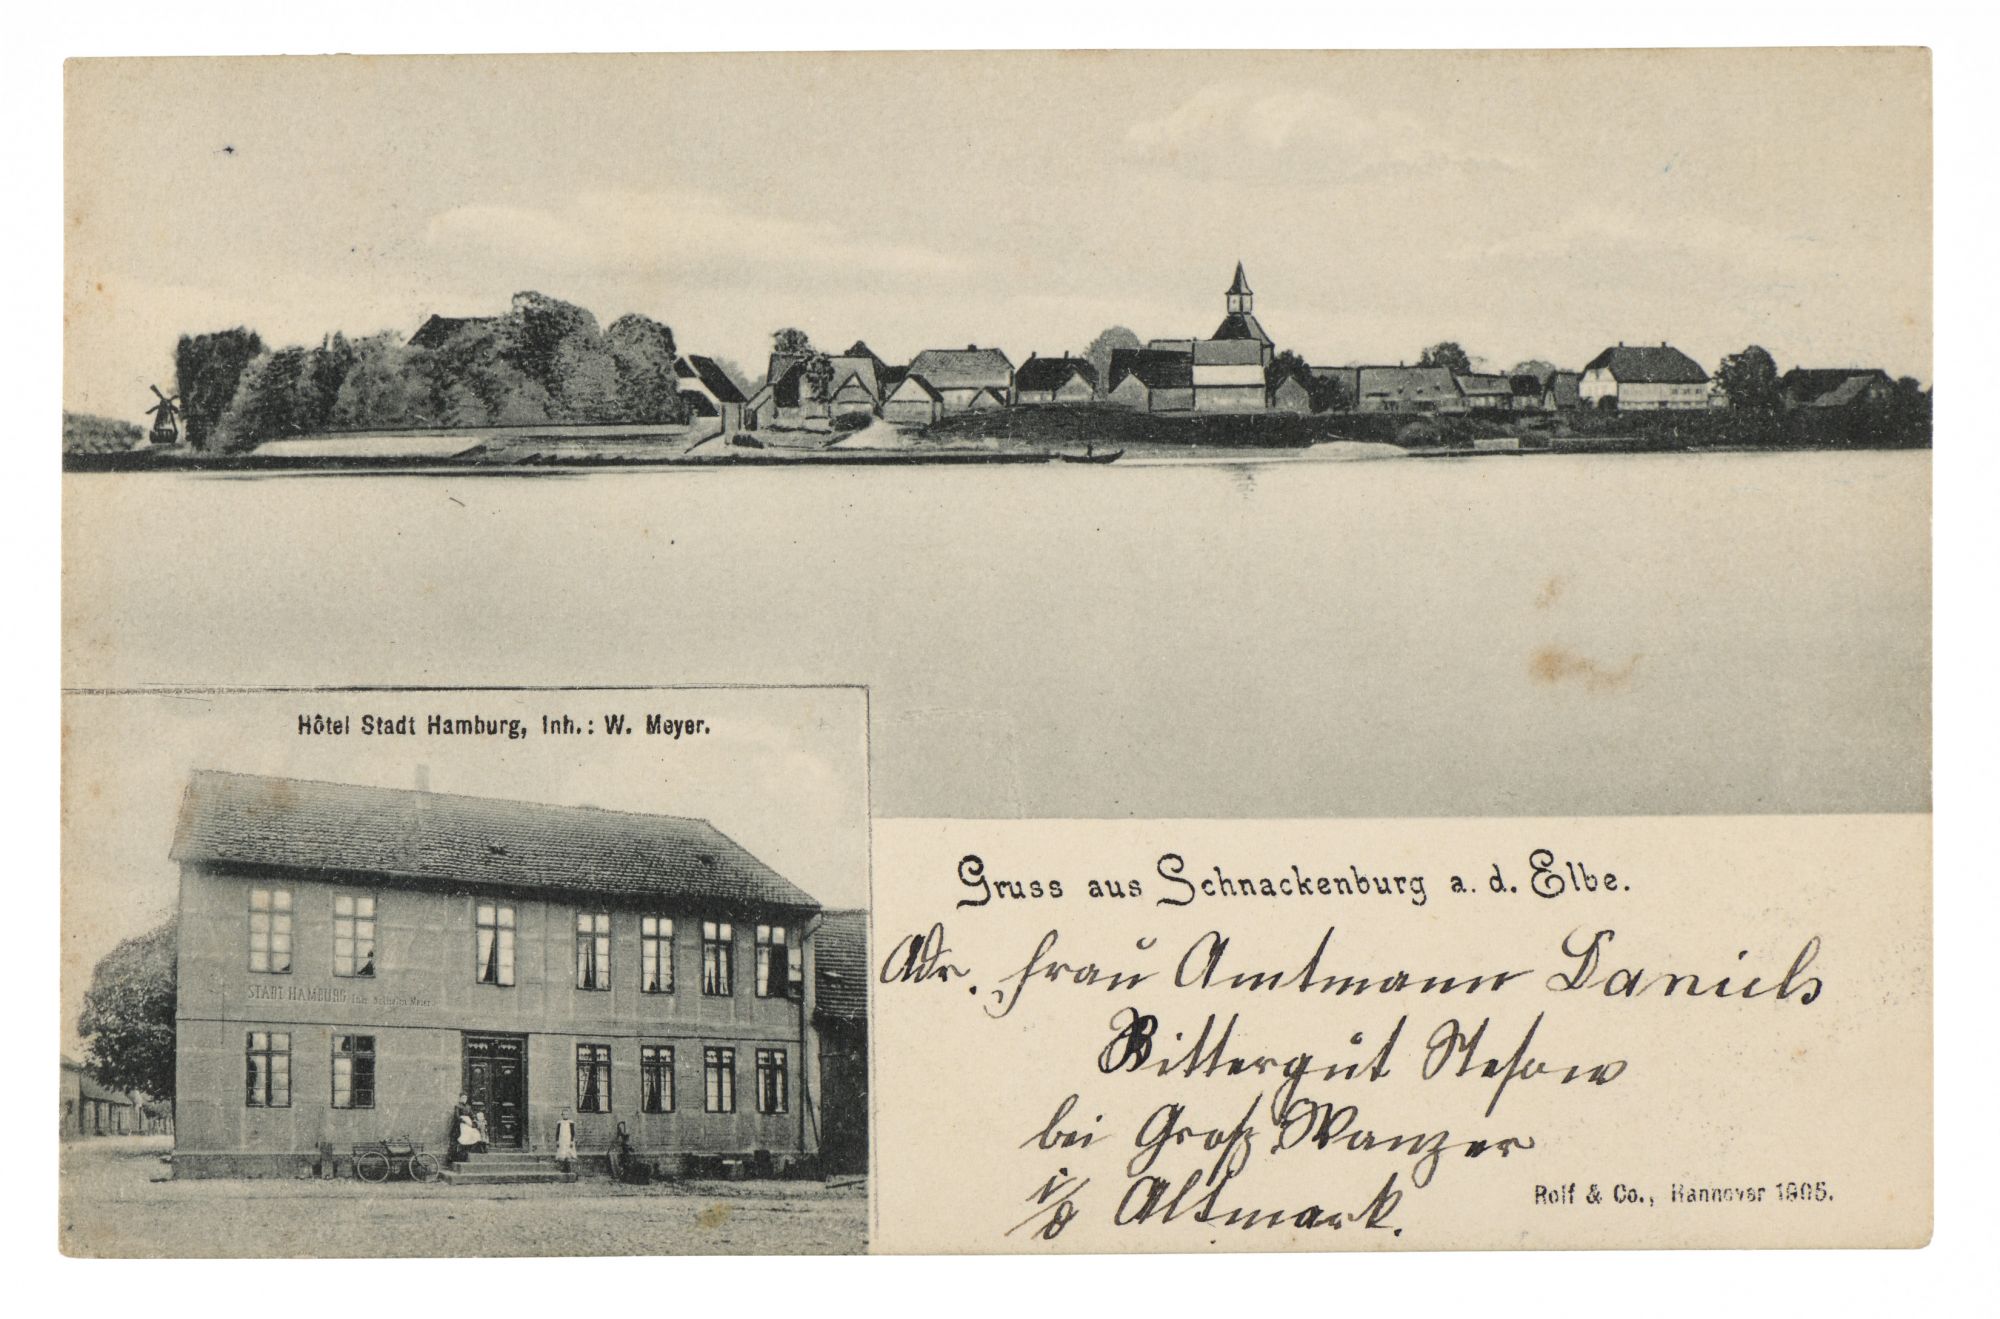 Hôtel Stadt Hamburg, Inh.: W. Meyer.
STADT HAMBURG Inh. Wilhelm Meier
Gruss aus Schnackenburg a. d. Elbe.
Adr. Frau Amtmann Daniels
Rittergut Stesow
bei Groß Wanzer
i/d Altmark.
Rolf & Co., Hannover 1905.